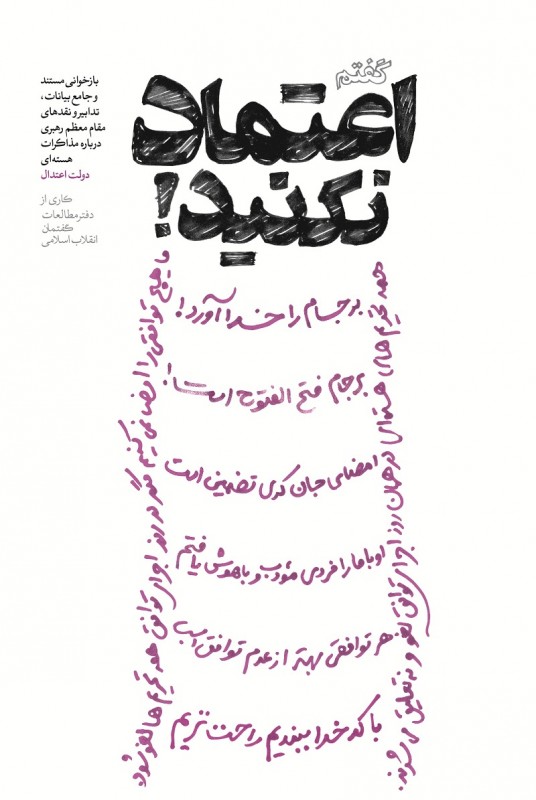 گفتم
اعتماد
نکنید!
بازخوانی مستند
و جامع بیانات،
تدابیر و نقدهای
مقام معظم رهبری
درباره مذاکرات
هسته‌ای
دولت اعتدال
کاری از
دفتر مطالعات
گفتمان
انقلاب اسلامی
همه تحریم های هسته‌ای در همان روز اجرای توافق لغو و نه تعلیق می‌شوند.
برجام را خدا آورد!
برجام فتح الفتوح است!
امضای جان کری تضمین است
اوباما را فردی مؤدب و باهوش یافتم
هر توافقی بهتر از عدم توافق است
با کدخدا ببندیم راحت تریم
ما هیچ توافقی را امضا نمی کنیم مگر در روز اجرای توافق همه تحریم ها لغو شود.